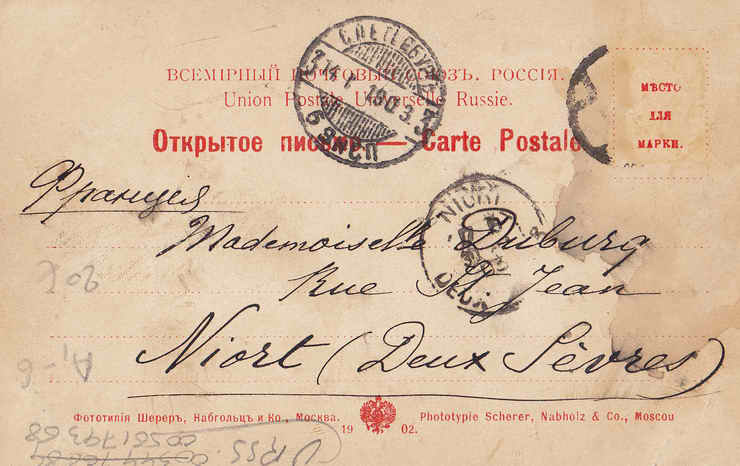 ВСЕМІРНЫЙ ПОЧТОВЫЙ СОЮЗЪ. РОССІЯ.
Union Postale Universelle Russie.
Открытое письмо — Carte Postale
МѢСТО
ДЛЯ
МАРКИ.
С.ПЕТЕРБУРГЪ
14 1 1903
NIORT
DEUX
Франція
Mademoiselle Duburg
Rue St Jean
Niort (Deux Sèvres)
20K
A1-6
Фототипія Шереръ, Набгольцъ и Ко., Москва.
1902.
Phototypie Scherer, Nabholz & Co., Moscou
URSS